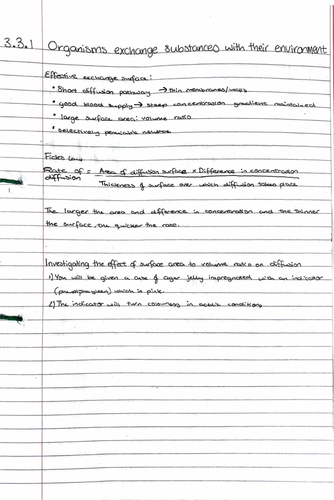 3.3.1 Organisms exchange substances with their environment
Effective exchange surface:
• Short diffusion pathway → thin membranes/walls
• good blood supply → steep concentration gradient maintained
• large surface area: volume ratio
• selectively permeable
Ficks law
Rate of = Area of diffusion surface × Difference in concentration
diffusion Thickness of surface over which diffusion takes place
The larger the area and difference in concentration and the thinner
the surface, the quicker the rate.
Investigating the effect of surface area to volume ratio on diffusion
1) You will be given a cube of agar jelly impregnated with an indicator
(phenolphthalein) which is pink.
2) The indicator will turn colourless in acidic conditions